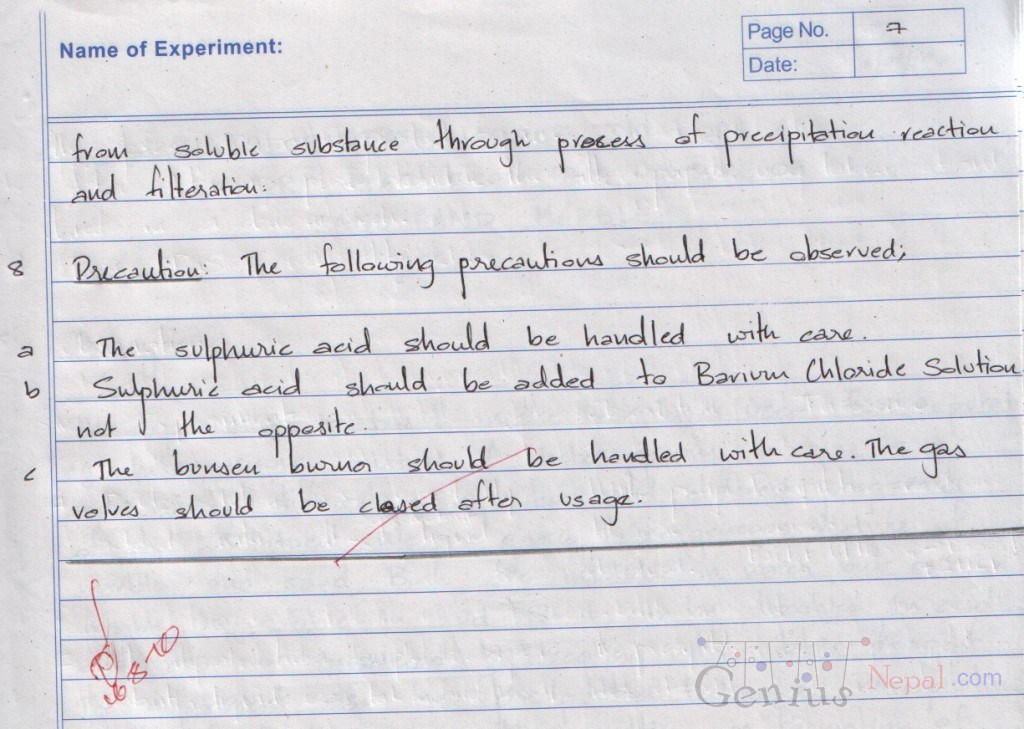 Name of Experiment:
Page No. 7
Date:
from soluble substance through process of precipitation reaction
and filteration.
8 Precaution: The following precautions should be observed;
a The sulphuric acid should be handled with care.
b Sulphuric acid should be added to Barium Chloride Solution
not the opposite.
c The bunsen burner should be handled with care. The gas
valves should be closed after usage.
Genius Nepal.com